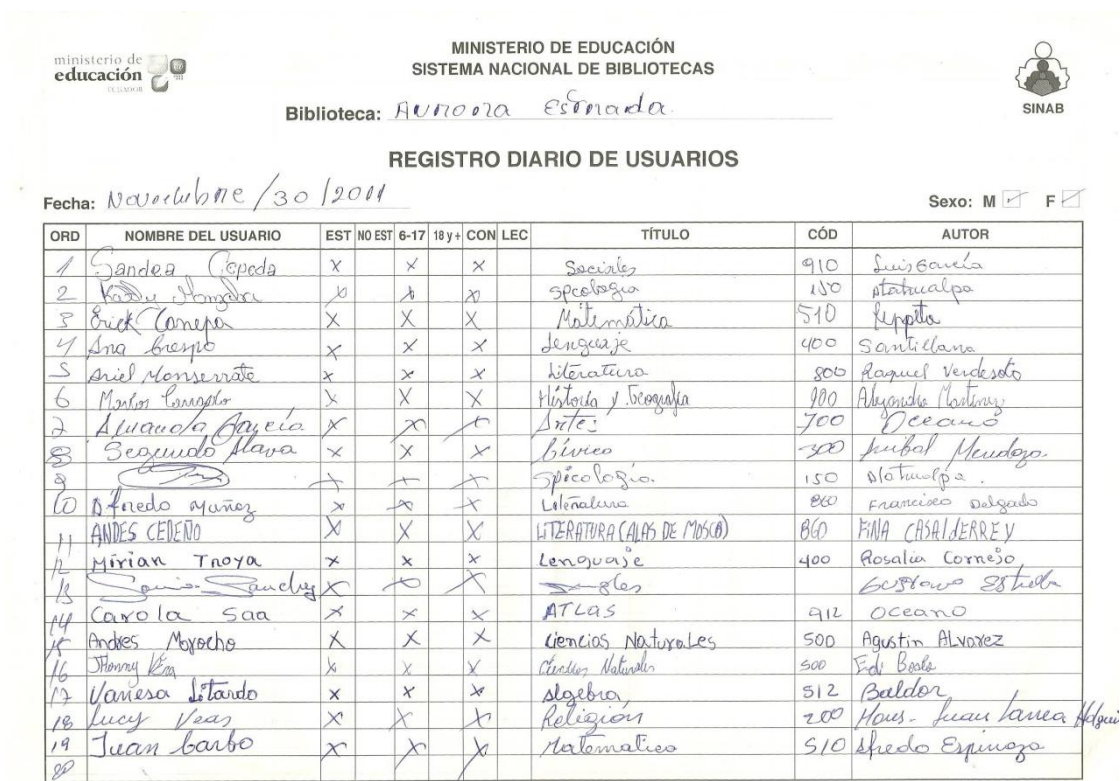 ministerio de
educación
ECUADOR
MINISTERIO DE EDUCACIÓN
SISTEMA NACIONAL DE BIBLIOTECAS
SINAB
Biblioteca: Aurora Estrada
REGISTRO DIARIO DE USUARIOS
Fecha: Noviembre /30/2011 Sexo: M ✓ F ✓
ORD NOMBRE DEL USUARIO EST NO EST 6-17 18 y + CON LEC TÍTULO CÓD AUTOR
1 Sandra Cepeda X X X Sociales 910 Luis García
2 X X X Spcologia 150 Atahualpa
3 Erick Canepa X X X Matemática 510
4 Ana Crespo X X X Lenguaje 400 Santillana
5 Ariel Monserrate X X X Literatura 800 Raquel Verdesoto
6 X X X Historia y Geografia 900 Alejandro Martinez
7 Amanda García X X X Artes 700 Oceano
8 Segundo Alava X X X Cívica 300 Anibal Mendoza.
9 X X X Spicología. 150 Atahualpa.
10 Alfredo Muñoz X X X Literatura 860 Francisco Delgado
11 ANDES CEDEÑO X X X LITERATURA (ALAS DE MOSCA) 860 FINA CASALDERREY
12 Mirian Troya X X X Lenguaje 400 Rosalia Cornejo
13 Sanchez X X X Ingles Gustavo
14 Carola Saa X X X ATLAS 912 OCEANO
15 Andres Morocho X X X Ciencias Naturales 500 Agustin ALvarez
16 Jhonny Vera X X X Ciencias Naturales 500
17 Vanesa Litardo X X X Algebra 512 Baldor
18 Lucy Veas X X X Religión 200 Mons. Juan Larrea
19 Juan Carbo X X X Matematica 510 Alfredo Espinoza
20